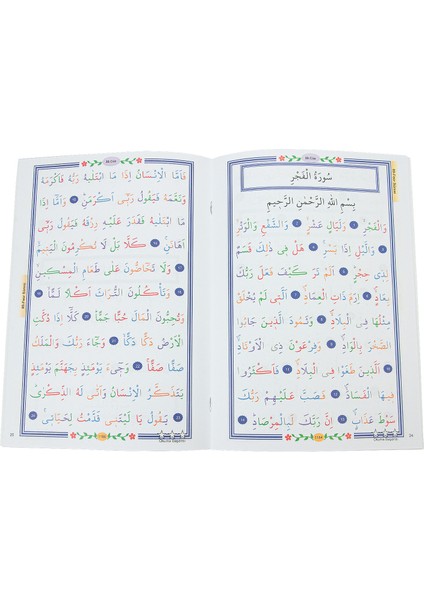 سُورَةُ الْفَجْرِ
بِسْمِ اللّٰهِ الرَّحْمٰنِ الرَّحِيمِ
وَالْفَجْرِۙ ١ وَلَيَالٍ عَشْرٍۙ ٢ وَالشَّفْعِ وَالْوَتْرِۙ
٣ وَالَّيْلِ اِذَا يَسْرِۚ ٤ هَلْ فِي ذٰلِكَ قَسَمٌ
لِذِي حِجْرٍۜ ٥ اَلَمْ تَرَ كَيْفَ فَعَلَ رَبُّكَ
بِعَادٍۙ ٦ اِرَمَ ذَاتِ الْعِمَادِۙ ٧ اَلَّتِي لَمْ يُخْلَقْ
مِثْلُهَا فِي الْبِلَادِۙ ٨ وَثَمُودَ الَّذِينَ جَابُوا
الصَّخْرَ بِالْوَادِۙ ٩ وَفِرْعَوْنَ ذِي الْاَوْتَادِۙ
١٠ اَلَّذِينَ طَغَوْا فِي الْبِلَادِۙ ١١ فَاَكْثَرُوا
فِيهَا الْفَسَادَۙ ١٢ فَصَبَّ عَلَيْهِمْ رَبُّكَ
سَوْطَ عَذَابٍۚ ١٣ اِنَّ رَبَّكَ لَبِالْمِرْصَادِۜ ١٤
فَاَمَّا الْاِنْسَانُ اِذَا مَا ابْتَلٰيهُ رَبُّهُ فَاَكْرَمَهُ
وَنَعَّمَهُ فَيَقُولُ رَبِّي اَكْرَمَنِۜ ١٥ وَاَمَّا اِذَا
مَا ابْتَلٰيهُ فَقَدَرَ عَلَيْهِ رِزْقَهُ فَيَقُولُ رَبِّي
اَهَانَنِۚ ١٦ كَلَّا بَلْ لَا تُكْرِمُونَ الْيَتِيمَۙ
١٧ وَلَا تَحَاضُّونَ عَلٰى طَعَامِ الْمِسْكِينِۙ
١٨ وَتَأْكُلُونَ التُّرَاثَ اَكْلًا لَمًّاۙ ١٩
وَتُحِبُّونَ الْمَالَ حُبًّا جَمًّاۜ ٢٠ كَلَّا اِذَا دُكَّتِ
الْاَرْضُ دَكًّا دَكًّاۙ ٢١ وَجَاءَ رَبُّكَ وَالْمَلَكُ
صَفًّا صَفًّاۚ ٢٢ وَجِيءَ يَوْمَئِذٍ بِجَهَنَّمَ يَوْمَئِذٍ
يَتَذَكَّرُ الْاِنْسَانُ وَاَنّٰى لَهُ الذِّكْرٰىۜ
٢٣ يَقُولُ يَا لَيْتَنِي قَدَّمْتُ لِحَيَاتِيۚ ٢٤